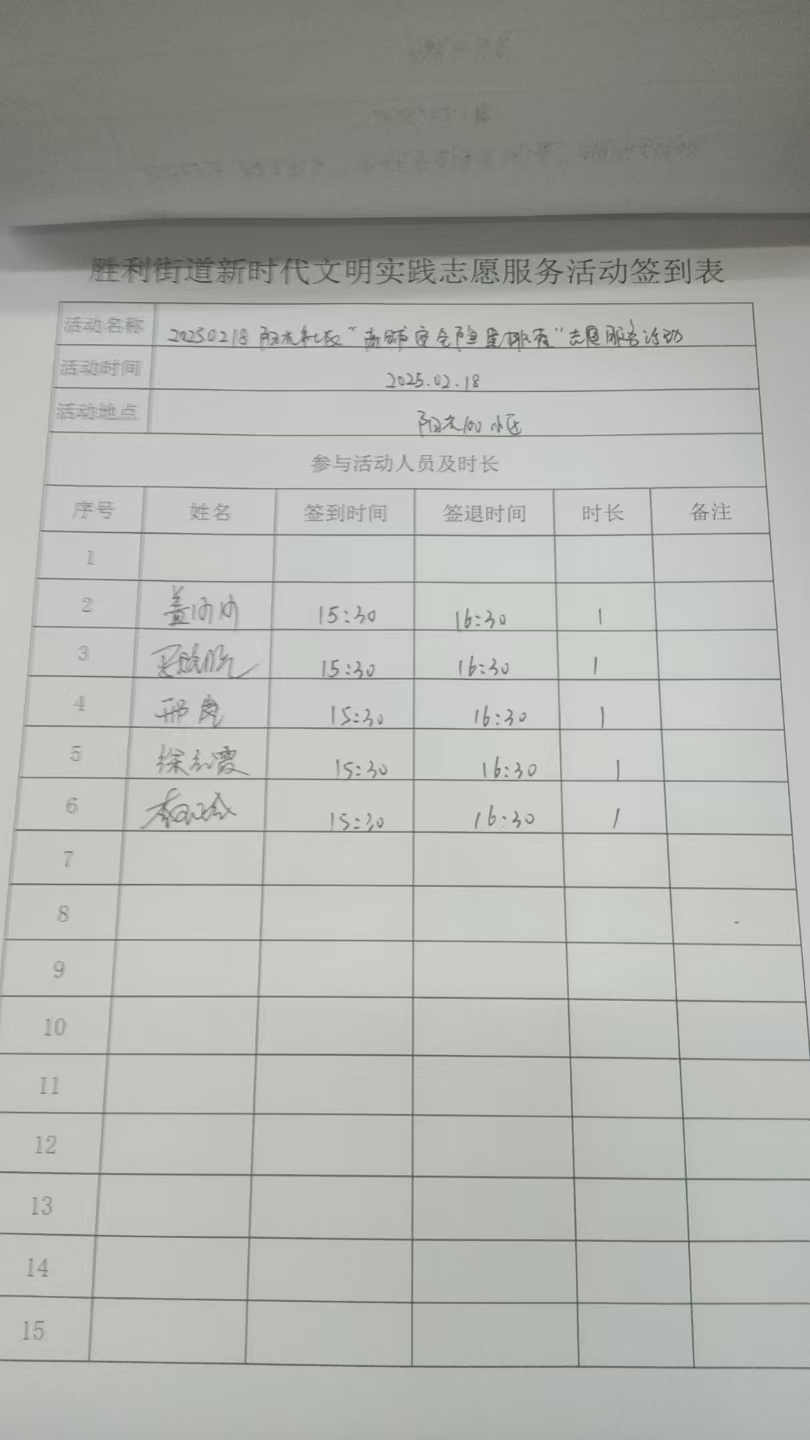 胜利街道新时代文明实践志愿服务活动签到表
活动名称 20250218阳光社区“商铺安全隐患排查”志愿服务活动
活动时间 2025.02.18
活动地点 阳光100小区
参与活动人员及时长
序号 姓名 签到时间 签退时间 时长 备注
1
2 盖 15:30 16:30 1
3 15:30 16:30 1
4 邢 15:30 16:30 1
5 徐 霞 15:30 16:30 1
6 15:30 16:30 1
7
8
9
10
11
12
13
14
15